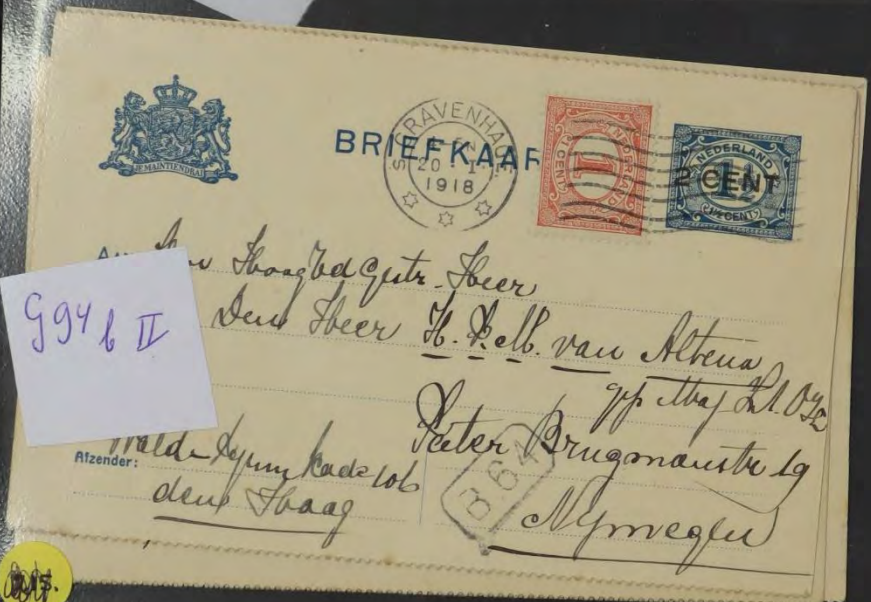 JE MAINTIENDRAI
BRIEFKAAR
'S GRAVENHAGE
20 I
1918
NEDERLAND
1
1 CENT
NEDERLAND
2 CENT
1½
1½ CENT
Hoog Ed Gestr. Heer
Den Heer H. P. M. van Altena
gep Maj
Pieter Brugmanstr 19
Nymegen
B 64
G 94 b II
Afzender:
kade 106
den Haag